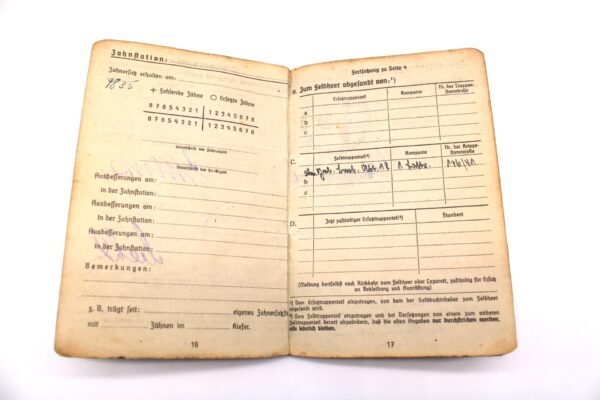 Zahnstation:
Zahnersatz erhalten am:
1835
+ Fehlende Zähne ○ Ersetzte Zähne
8 7 6 5 4 3 2 1 | 1 2 3 4 5 6 7 8
8 7 6 5 4 3 2 1 | 1 2 3 4 5 6 7 8
Unterschrift des
Unterschrift des
Ausbesserungen am:
in der Zahnstation:
Ausbesserungen am:
in der Zahnstation:
Ausbesserungen am:
in der Zahnstation:
Bemerkungen:
z. B. trägt seit: eigenes Zahnersatzstück
mit Zähnen im Kiefer.
16
Fortsetzung zu Seite 4
B. Zum Feldheer abgesandt von:¹)
Ersatztruppenteil
Kompanie
Nr. der Truppen-
stammrolle
a
b
c
C.
Feldtruppenteil²)
Kompanie
Nr. der Kriegs-
stammrolle
a
18 1. 176/41
b
c
D.
Jetzt zuständiger Ersatztruppenteil²)
Standort
(Meldung dortselbst nach Rückkehr vom Feldheer oder Lazarett, zuständig für Ersatz
an Bekleidung und Ausrüstung)
¹) Vom Ersatztruppenteil einzutragen, von dem der Soldbuchinhaber zum Feldheer
abgesandt wird.
²) Vom Feldtruppenteil einzutragen und bei Versetzungen von einem zum anderen
Feldtruppenteil derart abzuändern, daß die alten Angaben nur durchstrichen werden,
also leserlich bleiben.
17